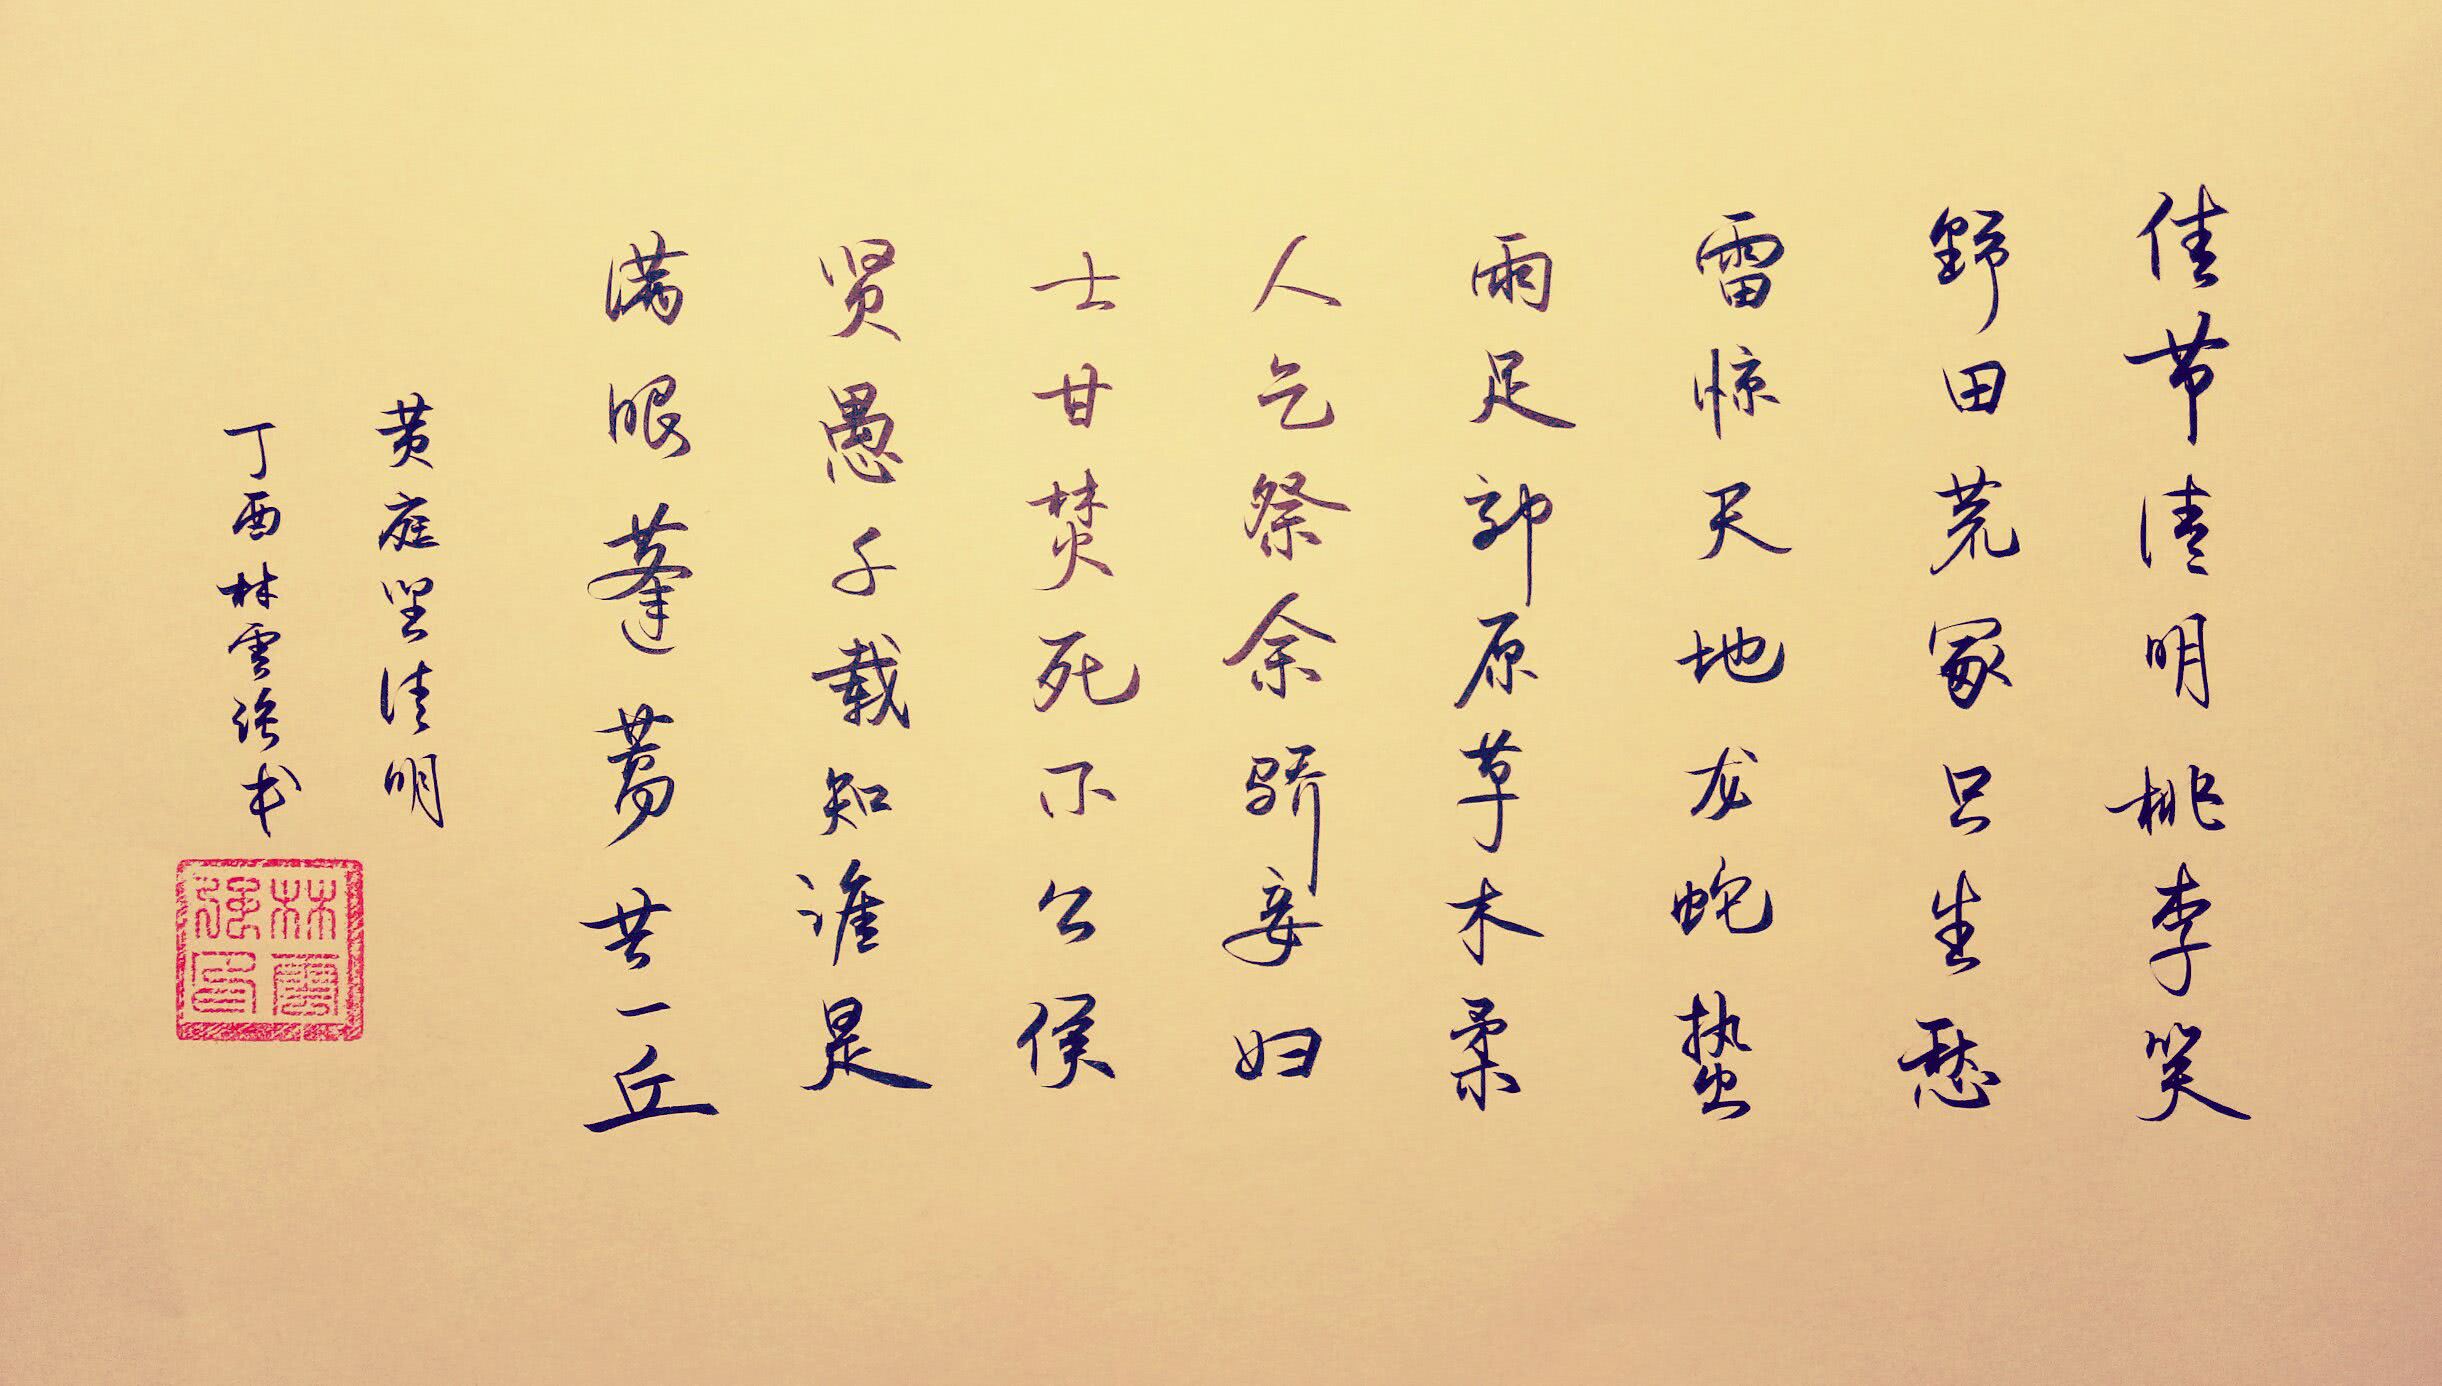 佳节清明桃李笑
野田荒冢只生愁
雷惊天地龙蛇蛰
雨足郊原草木柔
人乞祭余骄妾妇
士甘焚死不公侯
贤愚千载知谁是
满眼蓬蒿共一丘
黄庭坚清明
丁酉林雲强书
林雲
强印